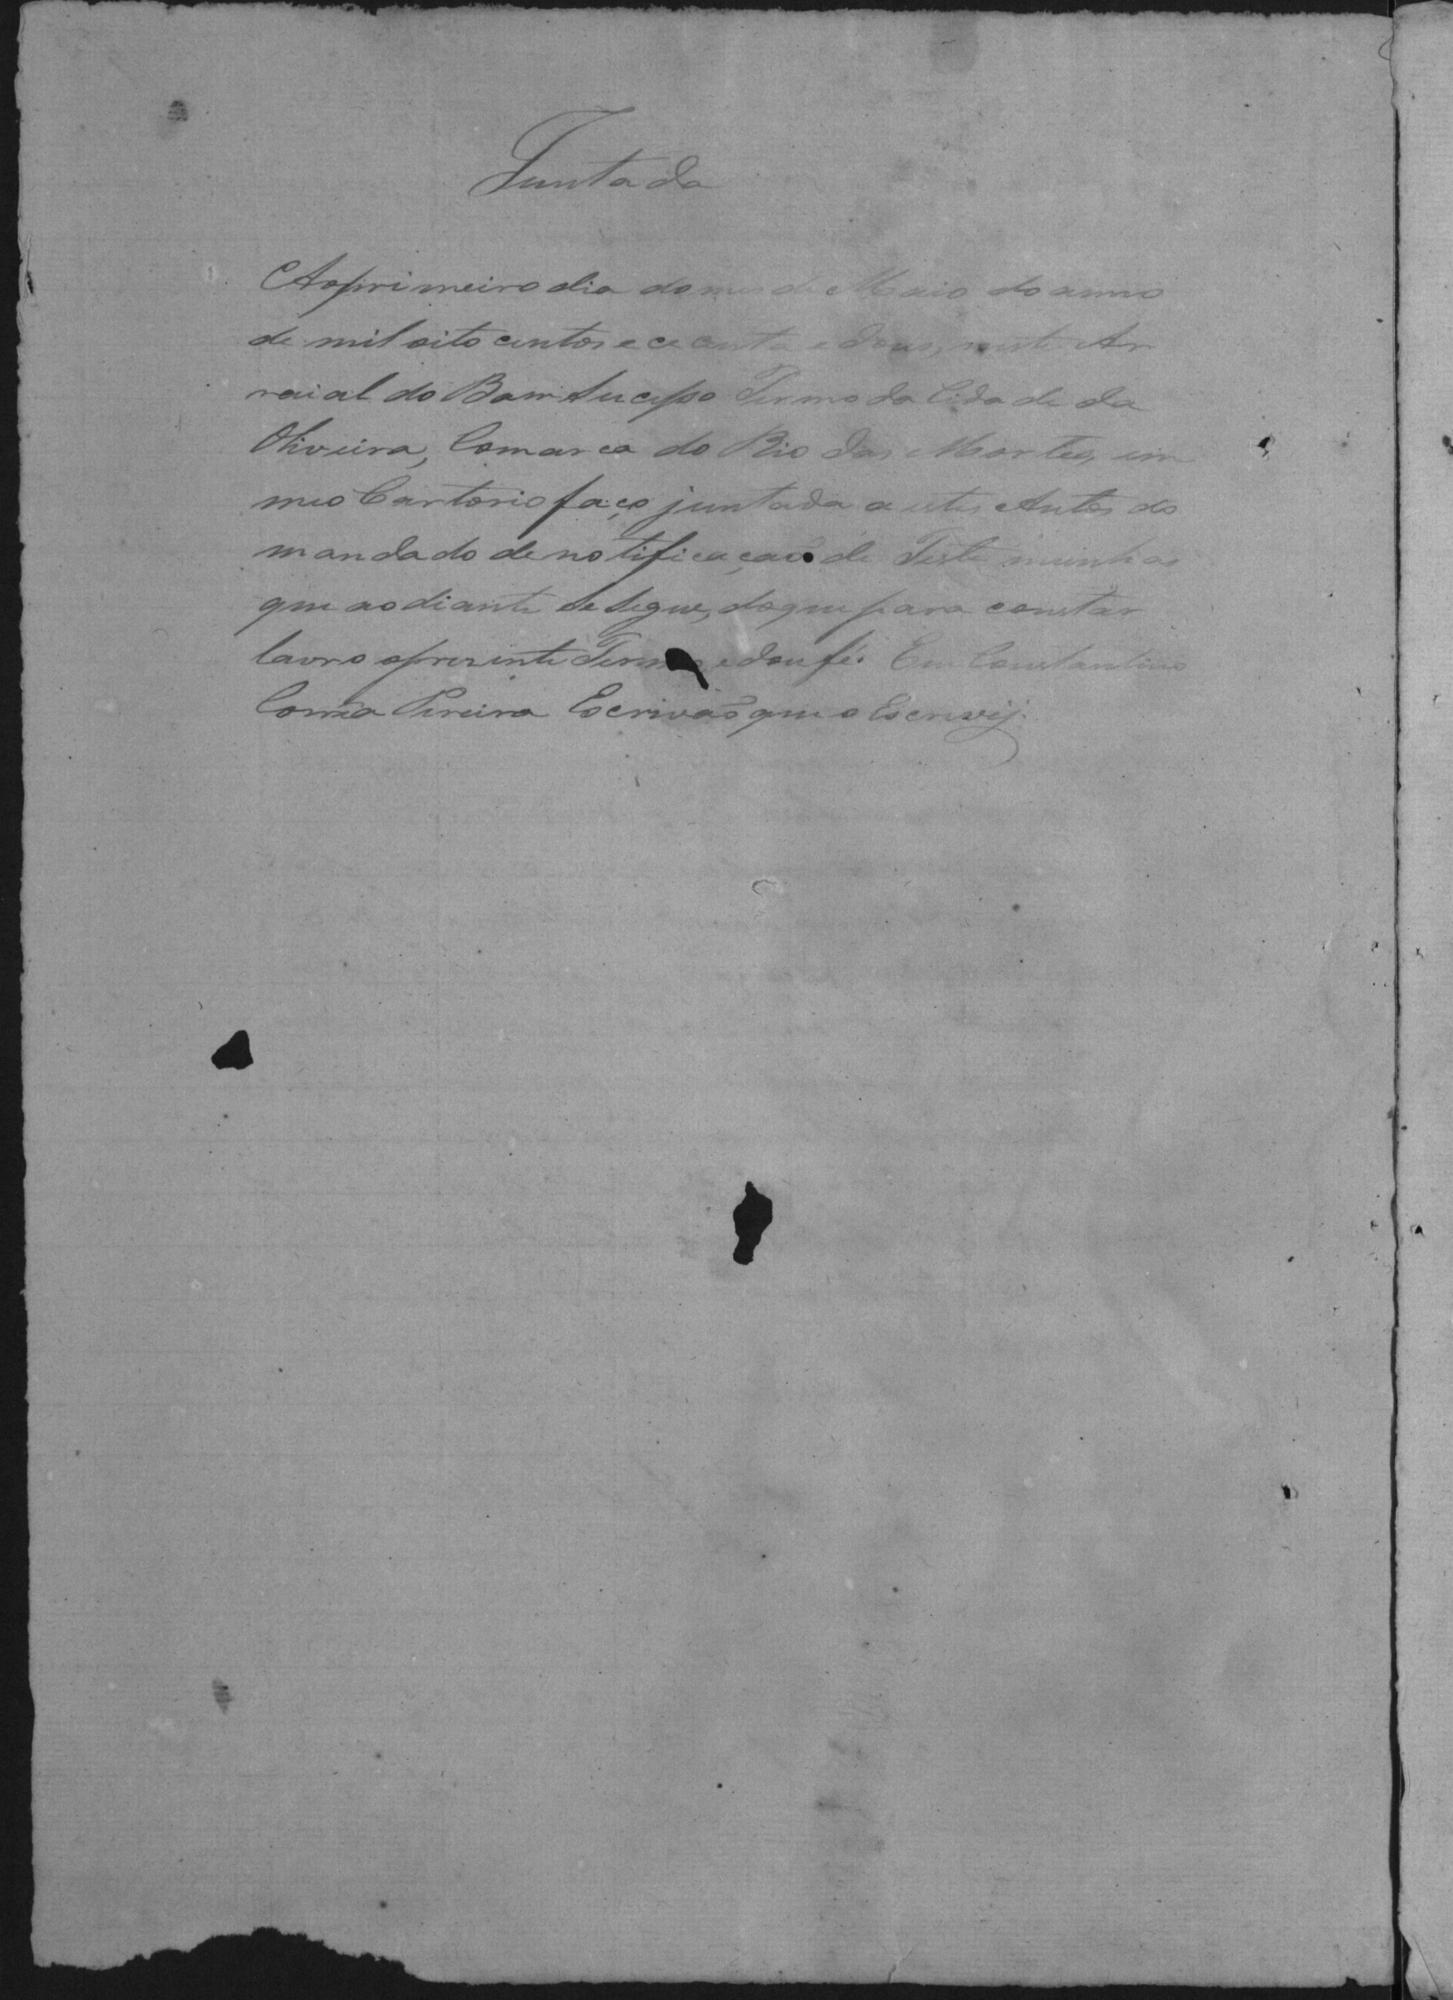 Juntada
Ao primeiro dia do mes de Maio do anno
de mil oito centos e cecenta e dous, neste Ar
raial do Bom Sucesso Termo da Cidade da
Oliveira, Comarca do Rio das Mortes, em
meo Cartorio faço juntada a estes Autos do
mandado de notificação de Testemunhas
que ao diante se segue, do que para constar
lavro o presente Termo e dou fé. Eu Constantino
Corrêa Pereira Escrivão que o Escrevÿ.